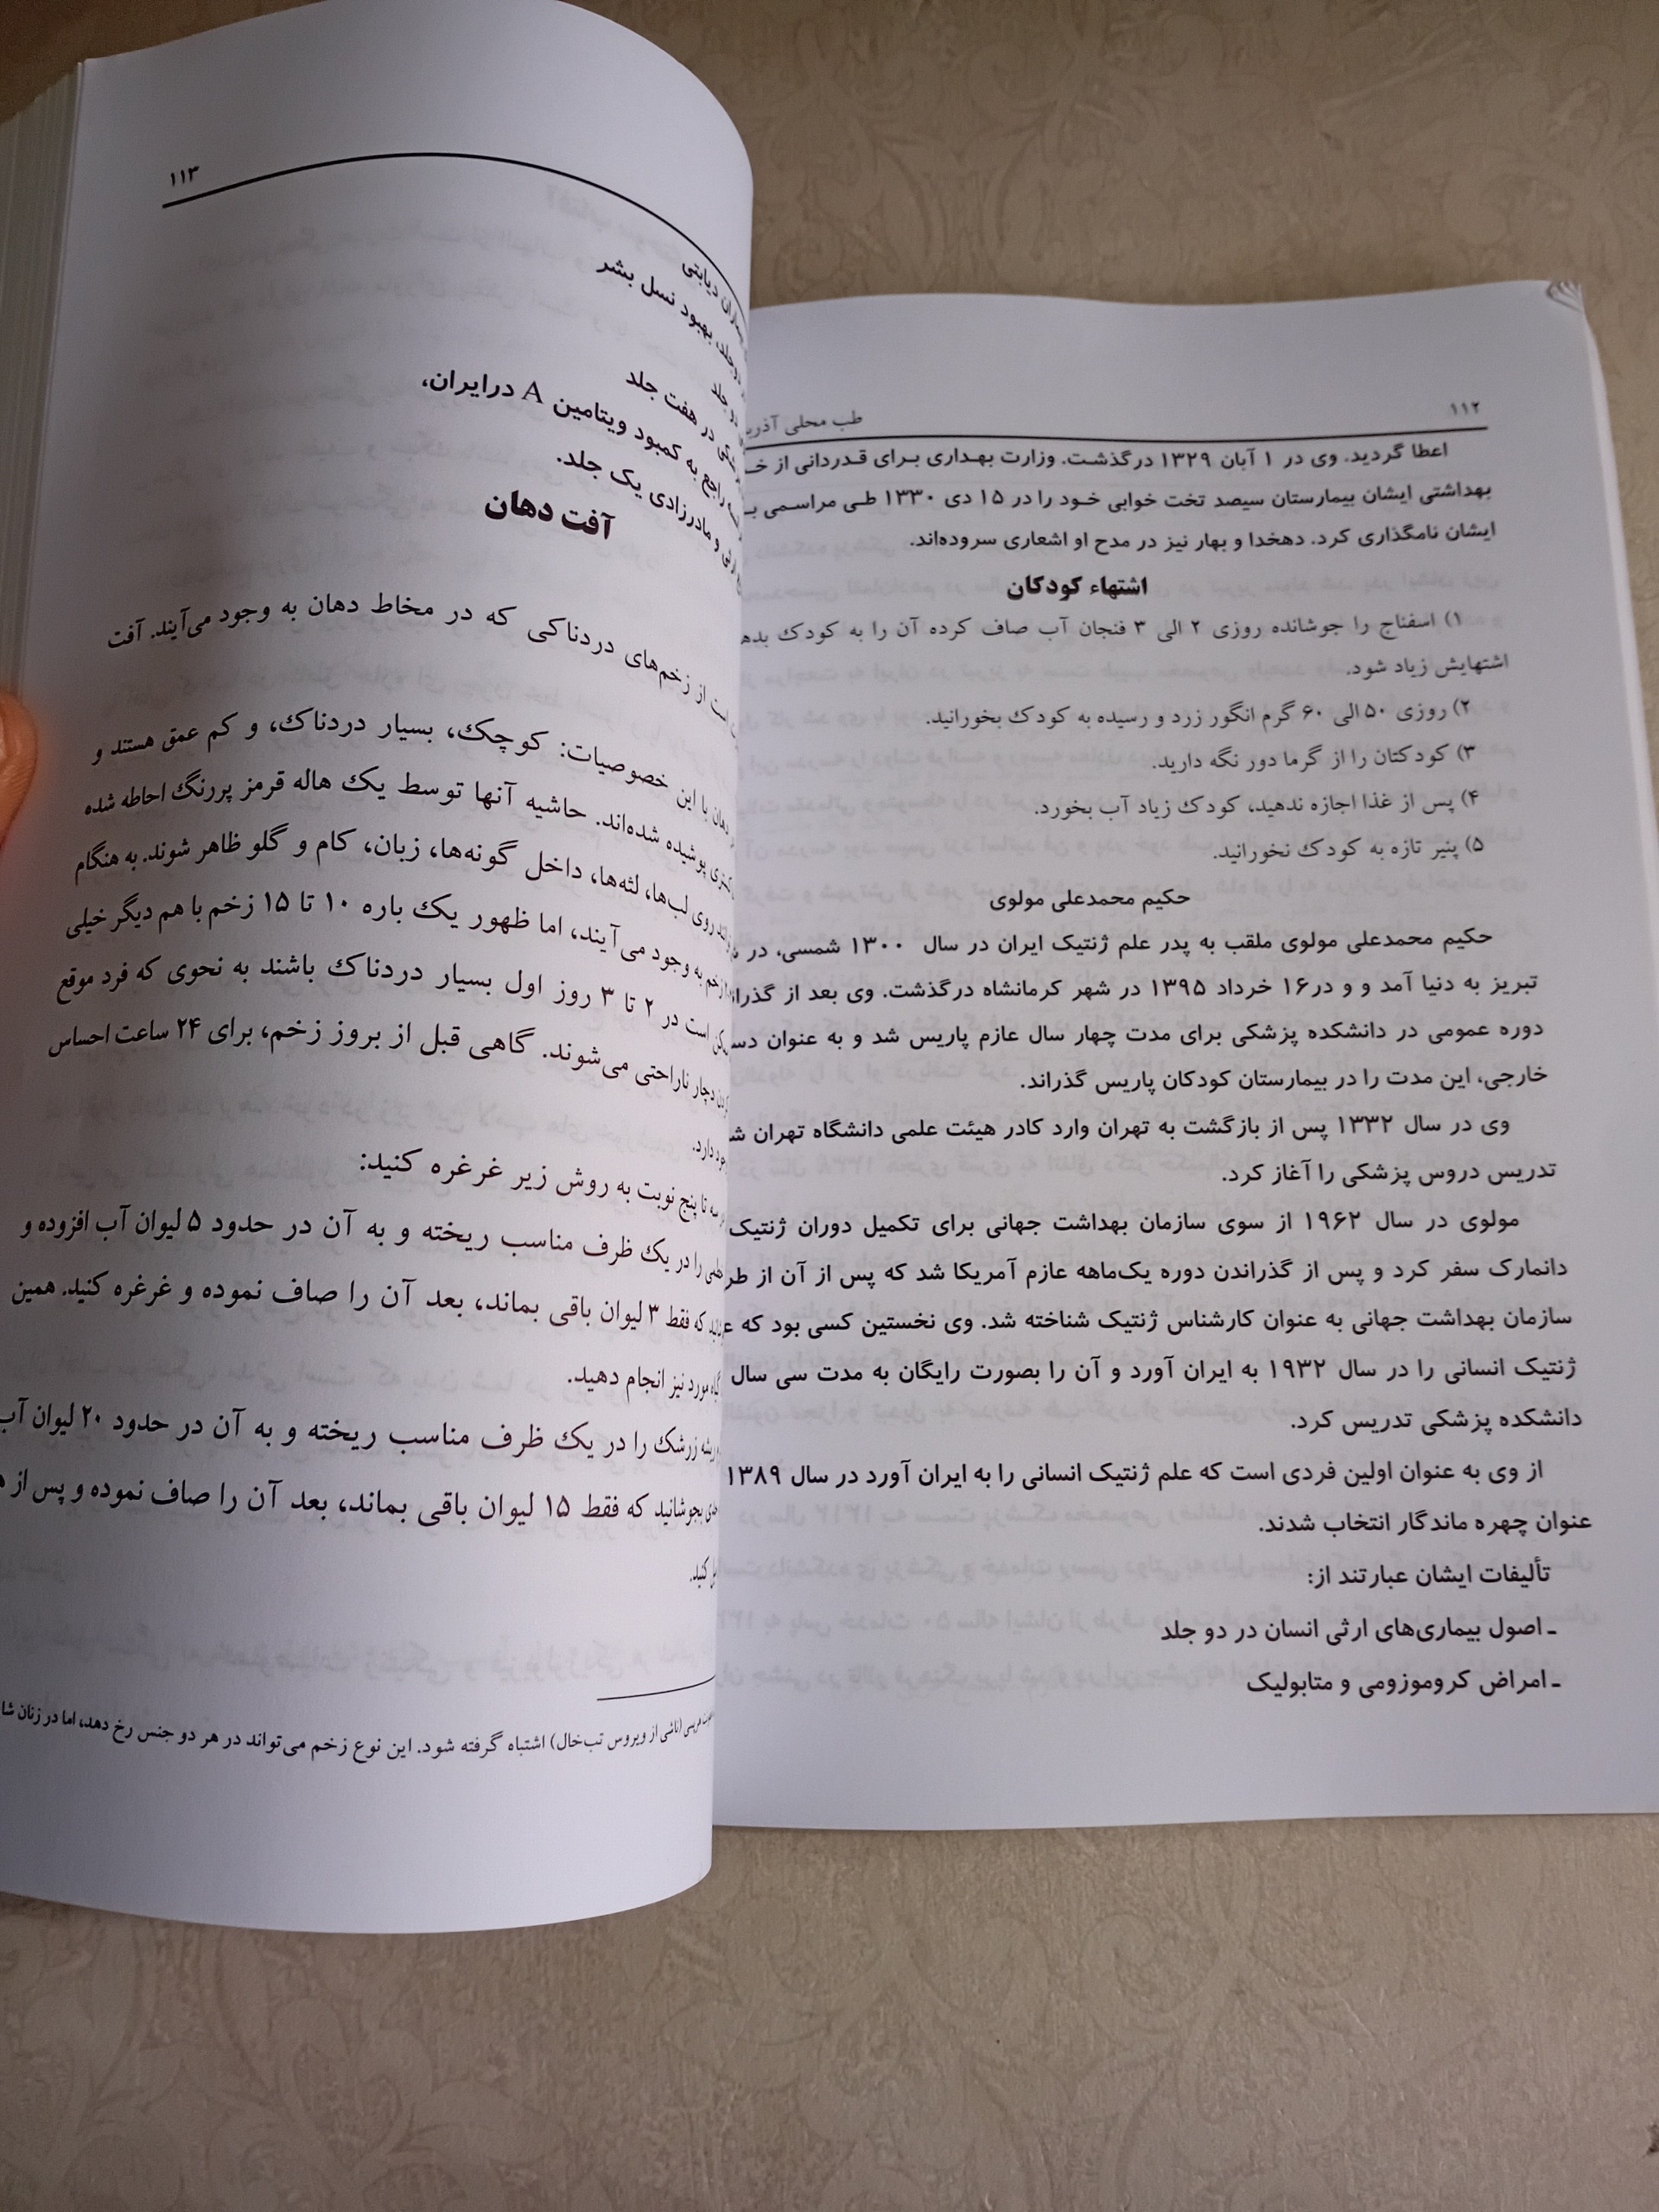 ۱۱۲
طب محلی
اعطا گردید. وی در ۱ آبان ۱۳۲۹ درگذشت. وزارت بهداری برای قدردانی از
بهداشتی ایشان بیمارستان سیصد تخت خوابی خود را در ۱۵ دی ۱۳۳۰ طی مراسمی
ایشان نامگذاری کرد. دهخدا و بهار نیز در مدح او اشعاری سروده‌اند.
اشتهاء کودکان
۱) اسفناج را جوشانده روزی ۲ الی ۳ فنجان آب صاف کرده آن را به کودک
اشتهایش زیاد شود.
۲) روزی ۵۰ الی ۶۰ گرم انگور زرد و رسیده به کودک بخورانید.
۳) کودکتان را از گرما دور نگه دارید.
۴) پس از غذا اجازه ندهید، کودک زیاد آب بخورد.
۵) پنیر تازه به کودک نخورانید.
حکیم محمدعلی مولوی
حکیم محمدعلی مولوی ملقب به پدر علم ژنتیک ایران در سال ۱۳۰۰ شمسی، در
تبریز به دنیا آمد و و در۱۶ خرداد ۱۳۹۵ در شهر کرمانشاه درگذشت. وی بعد از
دوره عمومی در دانشکده پزشکی برای مدت چهار سال عازم پاریس شد و به عنوان
خارجی، این مدت را در بیمارستان کودکان پاریس گذراند.
وی در سال ۱۳۳۲ پس از بازگشت به تهران وارد کادر هیئت علمی دانشگاه تهران
تدریس دروس پزشکی را آغاز کرد.
مولوی در سال ۱۹۶۲ از سوی سازمان بهداشت جهانی برای تکمیل دوران ژنتیک
دانمارک سفر کرد و پس از گذراندن دوره یک‌ماهه عازم آمریکا شد که پس از آن از
سازمان بهداشت جهانی به عنوان کارشناس ژنتیک شناخته شد. وی نخستین کسی بود که
ژنتیک انسانی را در سال ۱۹۳۲ به ایران آورد و آن را بصورت رایگان به مدت سی سال
دانشکده پزشکی تدریس کرد.
از وی به عنوان اولین فردی است که علم ژنتیک انسانی را به ایران آورد در سال ۱۳۸۹
عنوان چهره ماندگار انتخاب شدند.
تألیفات ایشان عبارتند از:
ـ اصول بیماری‌های ارثی انسان در دو جلد
ـ امراض کروموزومی و متابولیک
۱۱۳
دیابتی
بهبود نسل بشر
جلد
در هفت جلد
راجع به کمبود ویتامین A درایران،
و مادرزادی یک جلد.
آفت دهان
است از زخم‌های دردناکی که در مخاط دهان به وجود می‌آیند. آفت
دهان با این خصوصیات: کوچک، بسیار دردناک، و کم عمق هستند و
پوشیده شده‌اند. حاشیه آنها توسط یک هاله قرمز پررنگ احاطه شده
روی لب‌ها، لثه‌ها، داخل گونه‌ها، زبان، کام و گلو ظاهر شوند. به هنگام
زخم به وجود می‌آیند، اما ظهور یک باره ۱۰ تا ۱۵ زخم با هم دیگر خیلی
است در ۲ تا ۳ روز اول بسیار دردناک باشند به نحوی که فرد موقع
دچار ناراحتی می‌شوند. گاهی قبل از بروز زخم، برای ۲۴ ساعت احساس
دارد.
تا پنج نوبت به روش زیر غرغره کنید:
را در یک ظرف مناسب ریخته و به آن در حدود ۵ لیوان آب افزوده و
که فقط ۳ لیوان باقی بماند، بعد آن را صاف نموده و غرغره کنید. همین
مورد نیز انجام دهید.
ریشه زرشک را در یک ظرف مناسب ریخته و به آن در حدود ۲۰ لیوان آب
بجوشانید که فقط ۱۵ لیوان باقی بماند، بعد آن را صاف نموده و پس از
کنید.
(ناشی از ویروس تب‌خال) اشتباه گرفته شود. این نوع زخم می‌تواند در هر دو جنس رخ دهد، اما در زنان